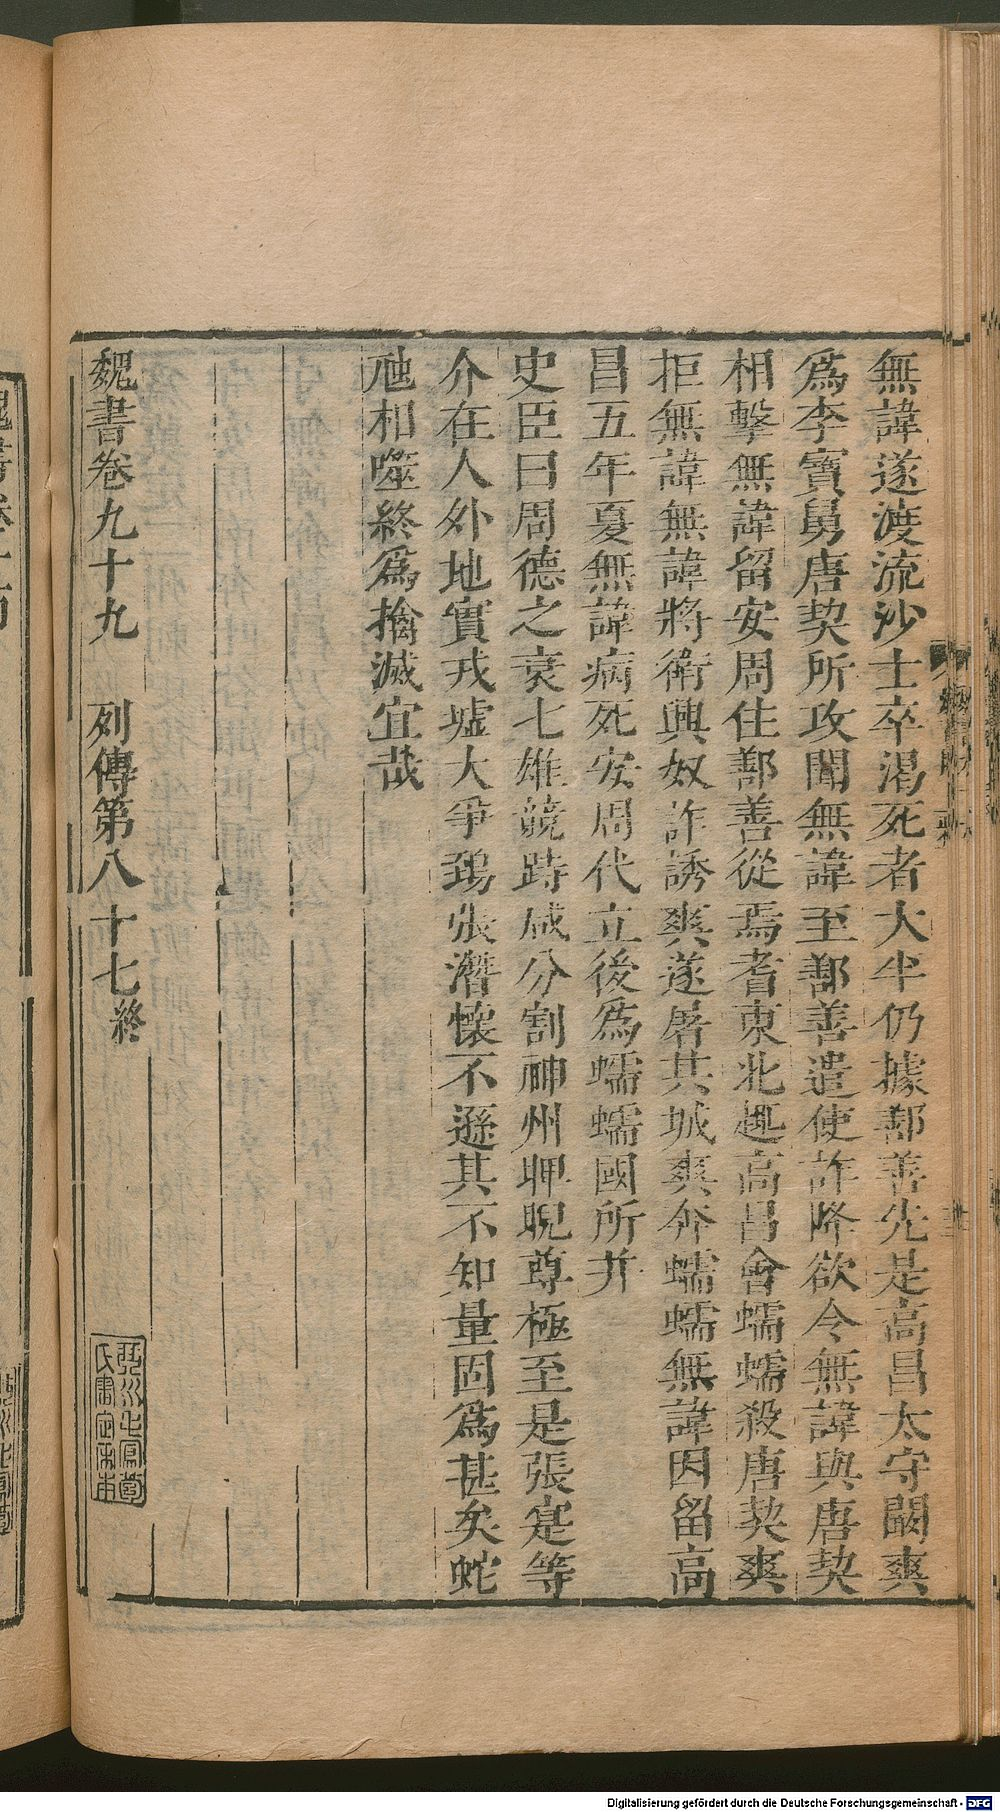 無諱遂渡流沙士卒渴死者大半仍據鄯善先是高昌太守闞爽
爲李寶舅唐契所攻聞無諱至鄯善遣使詐降欲令無諱與唐契
相擊無諱留安周住鄯善從焉耆東北趣高昌會蠕蠕殺唐契爽
拒無諱無諱將衞興奴詐誘爽遂屠其城爽奔蠕蠕無諱因留高
昌五年夏無諱病死安周代立後爲蠕蠕國所并
史臣曰周德之衰七雄競跱咸分割神州睥睨尊極至是張寔等
介在人外地實戎墟大爭鵄張潛懷不遜其不知量固爲甚矣蛇
虺相噬終爲擒滅宜哉
魏書卷九十九　列傳第八十七終
Digitalisierung gefördert durch die Deutsche Forschungsgemeinschaft - DFG